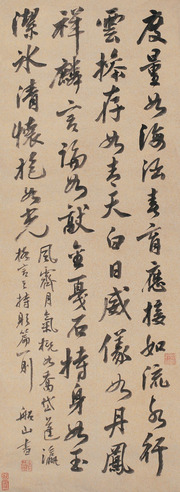 度量如海涵春育應接如流水行
雲操存如青天白日威儀如丹鳳
祥麟言論如敲金戛石持身如玉
潔冰清懷抱如光
風霽月氣概如喬岱蓬瀛
格言之持身篇一則 船山書